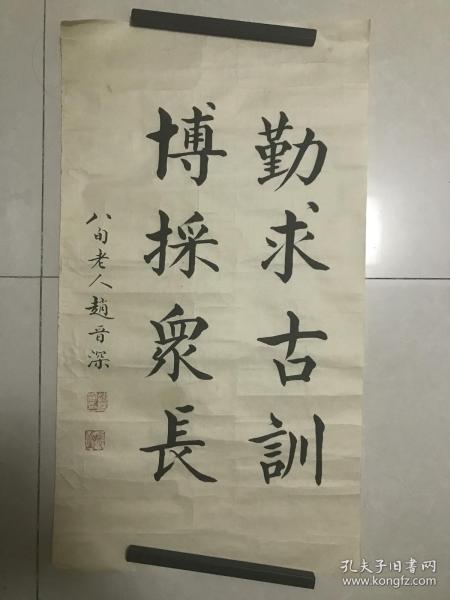 勤求古訓
博採衆長
八旬老人趙晉深
孔夫子旧书网
www.kongfz.com